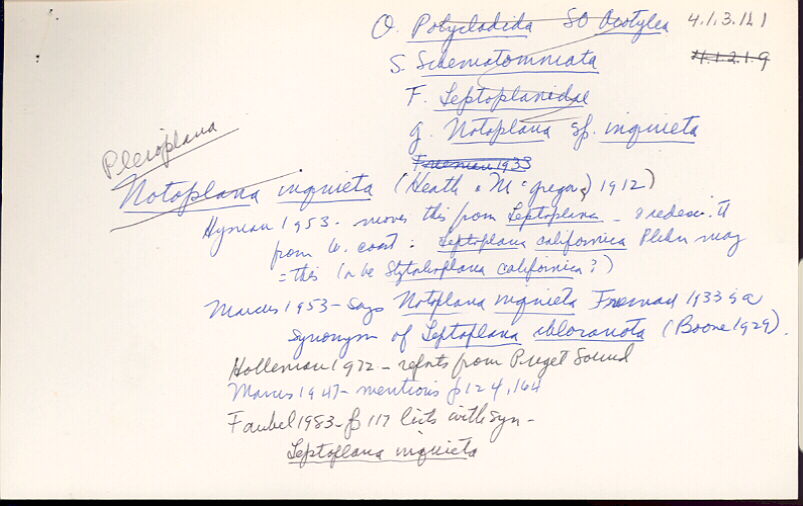 O. Polycladida SO Acotylea 4.1.3.1L1
S. Schematommata 4.1.2.1.9
F. Leptoplanidae
g. Notoplana sp. inquieta
Freeman 1933
Pleioplana
Notoplana inquieta (Heath & McGregor, 1912)
Hyman 1953 - moves this from Leptoplana - & redescr. it
from W. coast : Leptoplana californica Plehn may
= this (or be Stylochoplana californica?)
Marcus 1953 - says Notoplana inquieta Freeman 1933 is a
synonym of Leptoplana chloranota (Boone 1929).
Holleman 1972 - reports from Puget Sound
Marcus 1947 - mentions p 124, 164
Faubel 1983 - p 117 lists with syn -
Leptoplana inquieta